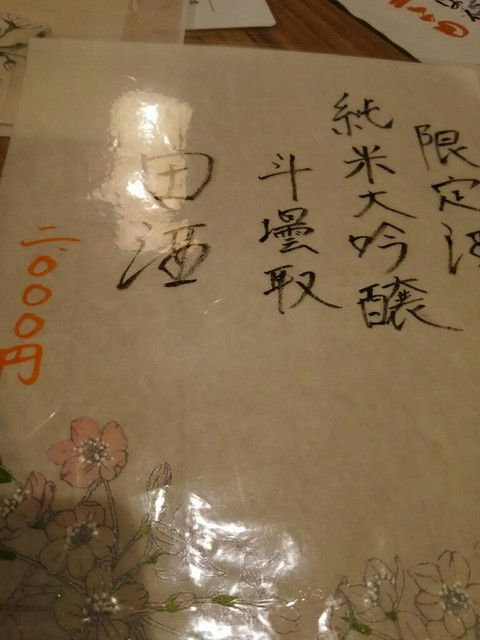 限定酒
純米大吟醸
斗壜取
田酒
二、〇〇〇円